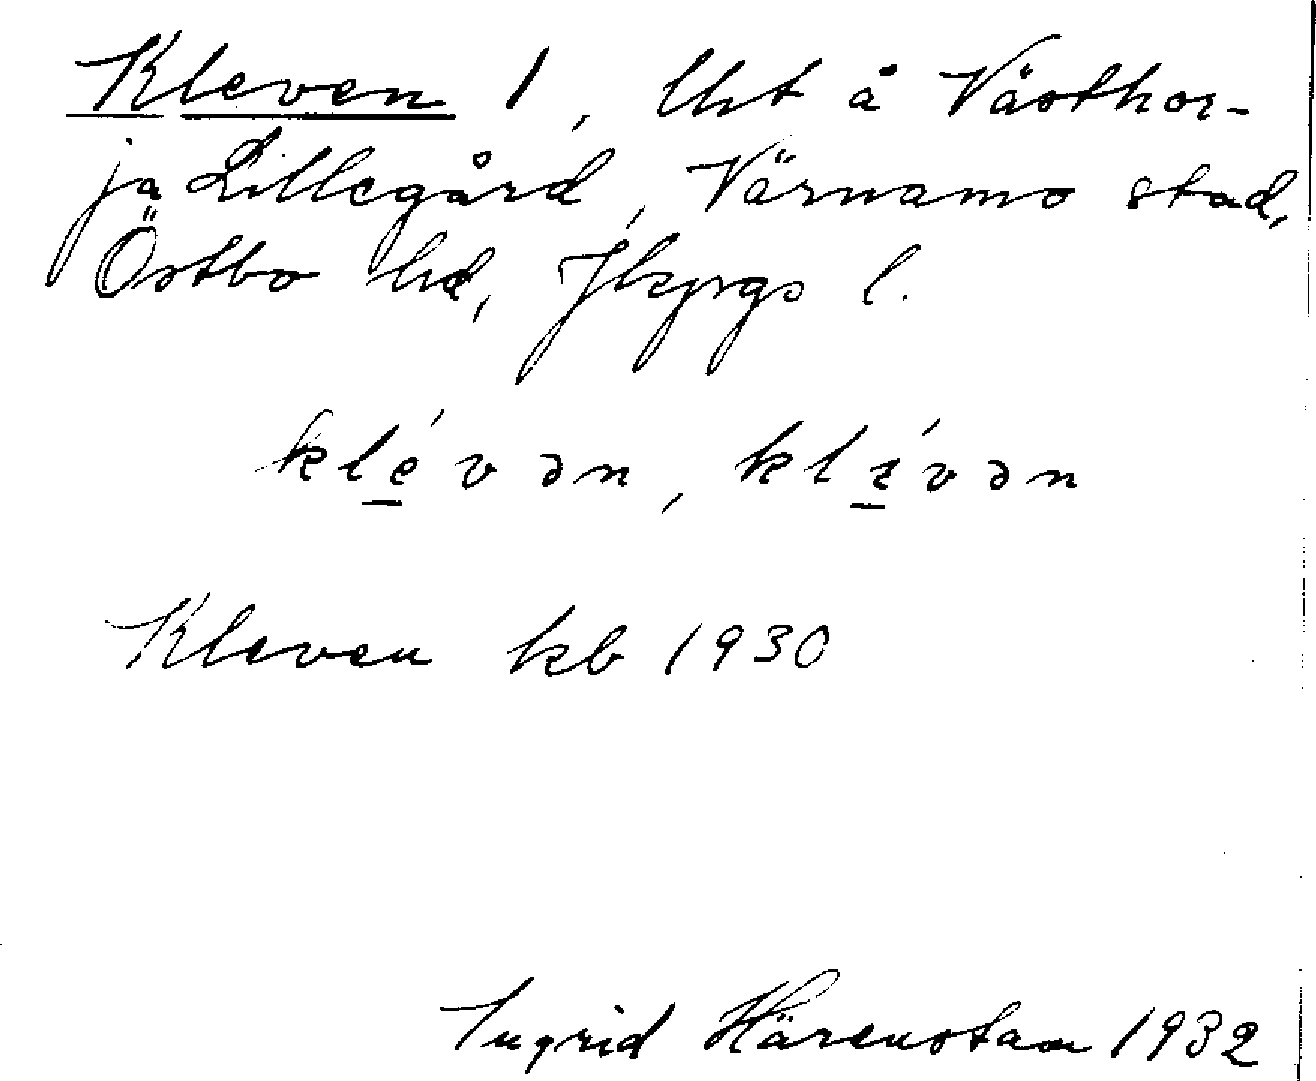 Kleven 1, lht å Västhor-
ja Lillegård, Värnamo stad,
Östbo hd, Jkpgs l.
klévən, klívən
Kleven kb 1930
Ingrid Härenstam 1932